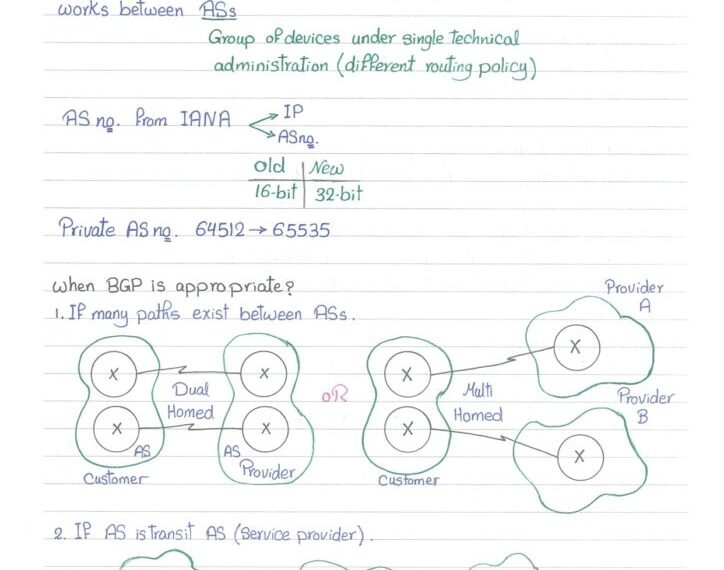 works between ASs
Group of devices under single technical
administration (different routing policy)
AS no. from IANA
IP
AS no.
old New
16-bit 32-bit
Private AS no. 64512 → 65535
when BGP is appropriate?
1. If many paths exist between ASs.
Provider
A
X X X X
Dual
Homed
OR
Multi
Homed
Provider
B
X X X X
AS AS
Customer
Provider
Customer
2. If AS is transit AS (Service provider).